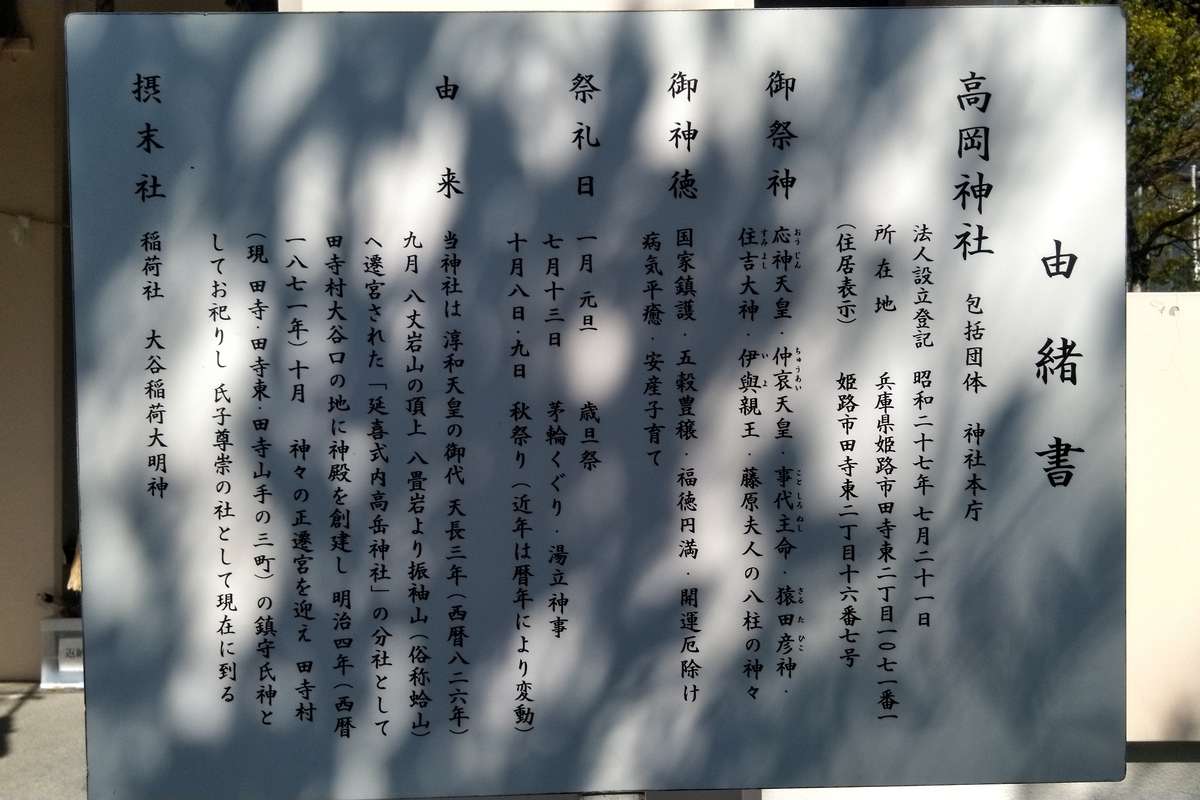 由緒書
高岡神社 包括団体 神社本庁
法人設立登記 昭和二十七年七月二十一日
所在地 兵庫県姫路市田寺東二丁目一〇七一番一
(住居表示) 姫路市田寺東二丁目十六番七号
御祭神 応神天皇・仲哀天皇・事代主命・猿田彦神・
おうじん ちゅうあい ことしろぬし さるたひこ
住吉大神・伊與親王・藤原夫人の八柱の神々
すみよし いよ
御神徳 国家鎮護・五穀豊穣・福徳円満・開運厄除け
病気平癒・安産子育て
祭礼日 一月元旦 歳旦祭
七月十三日 茅輪くぐり・湯立神事
十月八日・九日 秋祭り(近年は暦年により変動)
由来 当神社は 淳和天皇の御代 天長三年(西暦八二六年)
九月 八丈岩山の頂上 八畳岩より振袖山(俗称蛤山)
へ遷宮された「延喜式内高岳神社」の分社として
田寺村大谷口の地に神殿を創建し 明治四年(西暦
一八七一年)十月 神々の正遷宮を迎え 田寺村
(現 田寺・田寺東・田寺山手の三町)の鎮守氏神と
してお祀りし 氏子尊崇の社として現在に到る
摂末社 稲荷社 大谷稲荷大明神